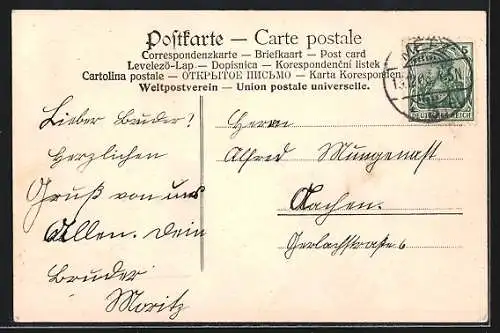 Postkarte — Carte postale
Correspondenzkarte — Briefkaart — Post card
Levelező-Lap — Dopisnica — Korespondenční listek
Cartolina postale — ОТКРЫТОЕ ПИСЬМО — Karta Korespondenc
Weltpostverein — Union postale universelle.
5
DEUTSCHES REICH
Lieber Bruder!
Herzlichen
Gruß von uns
Allen. Dein
Bruder
Moritz
Herrn
Alfred Mungenast
Aachen.
Gerlachstraße 6